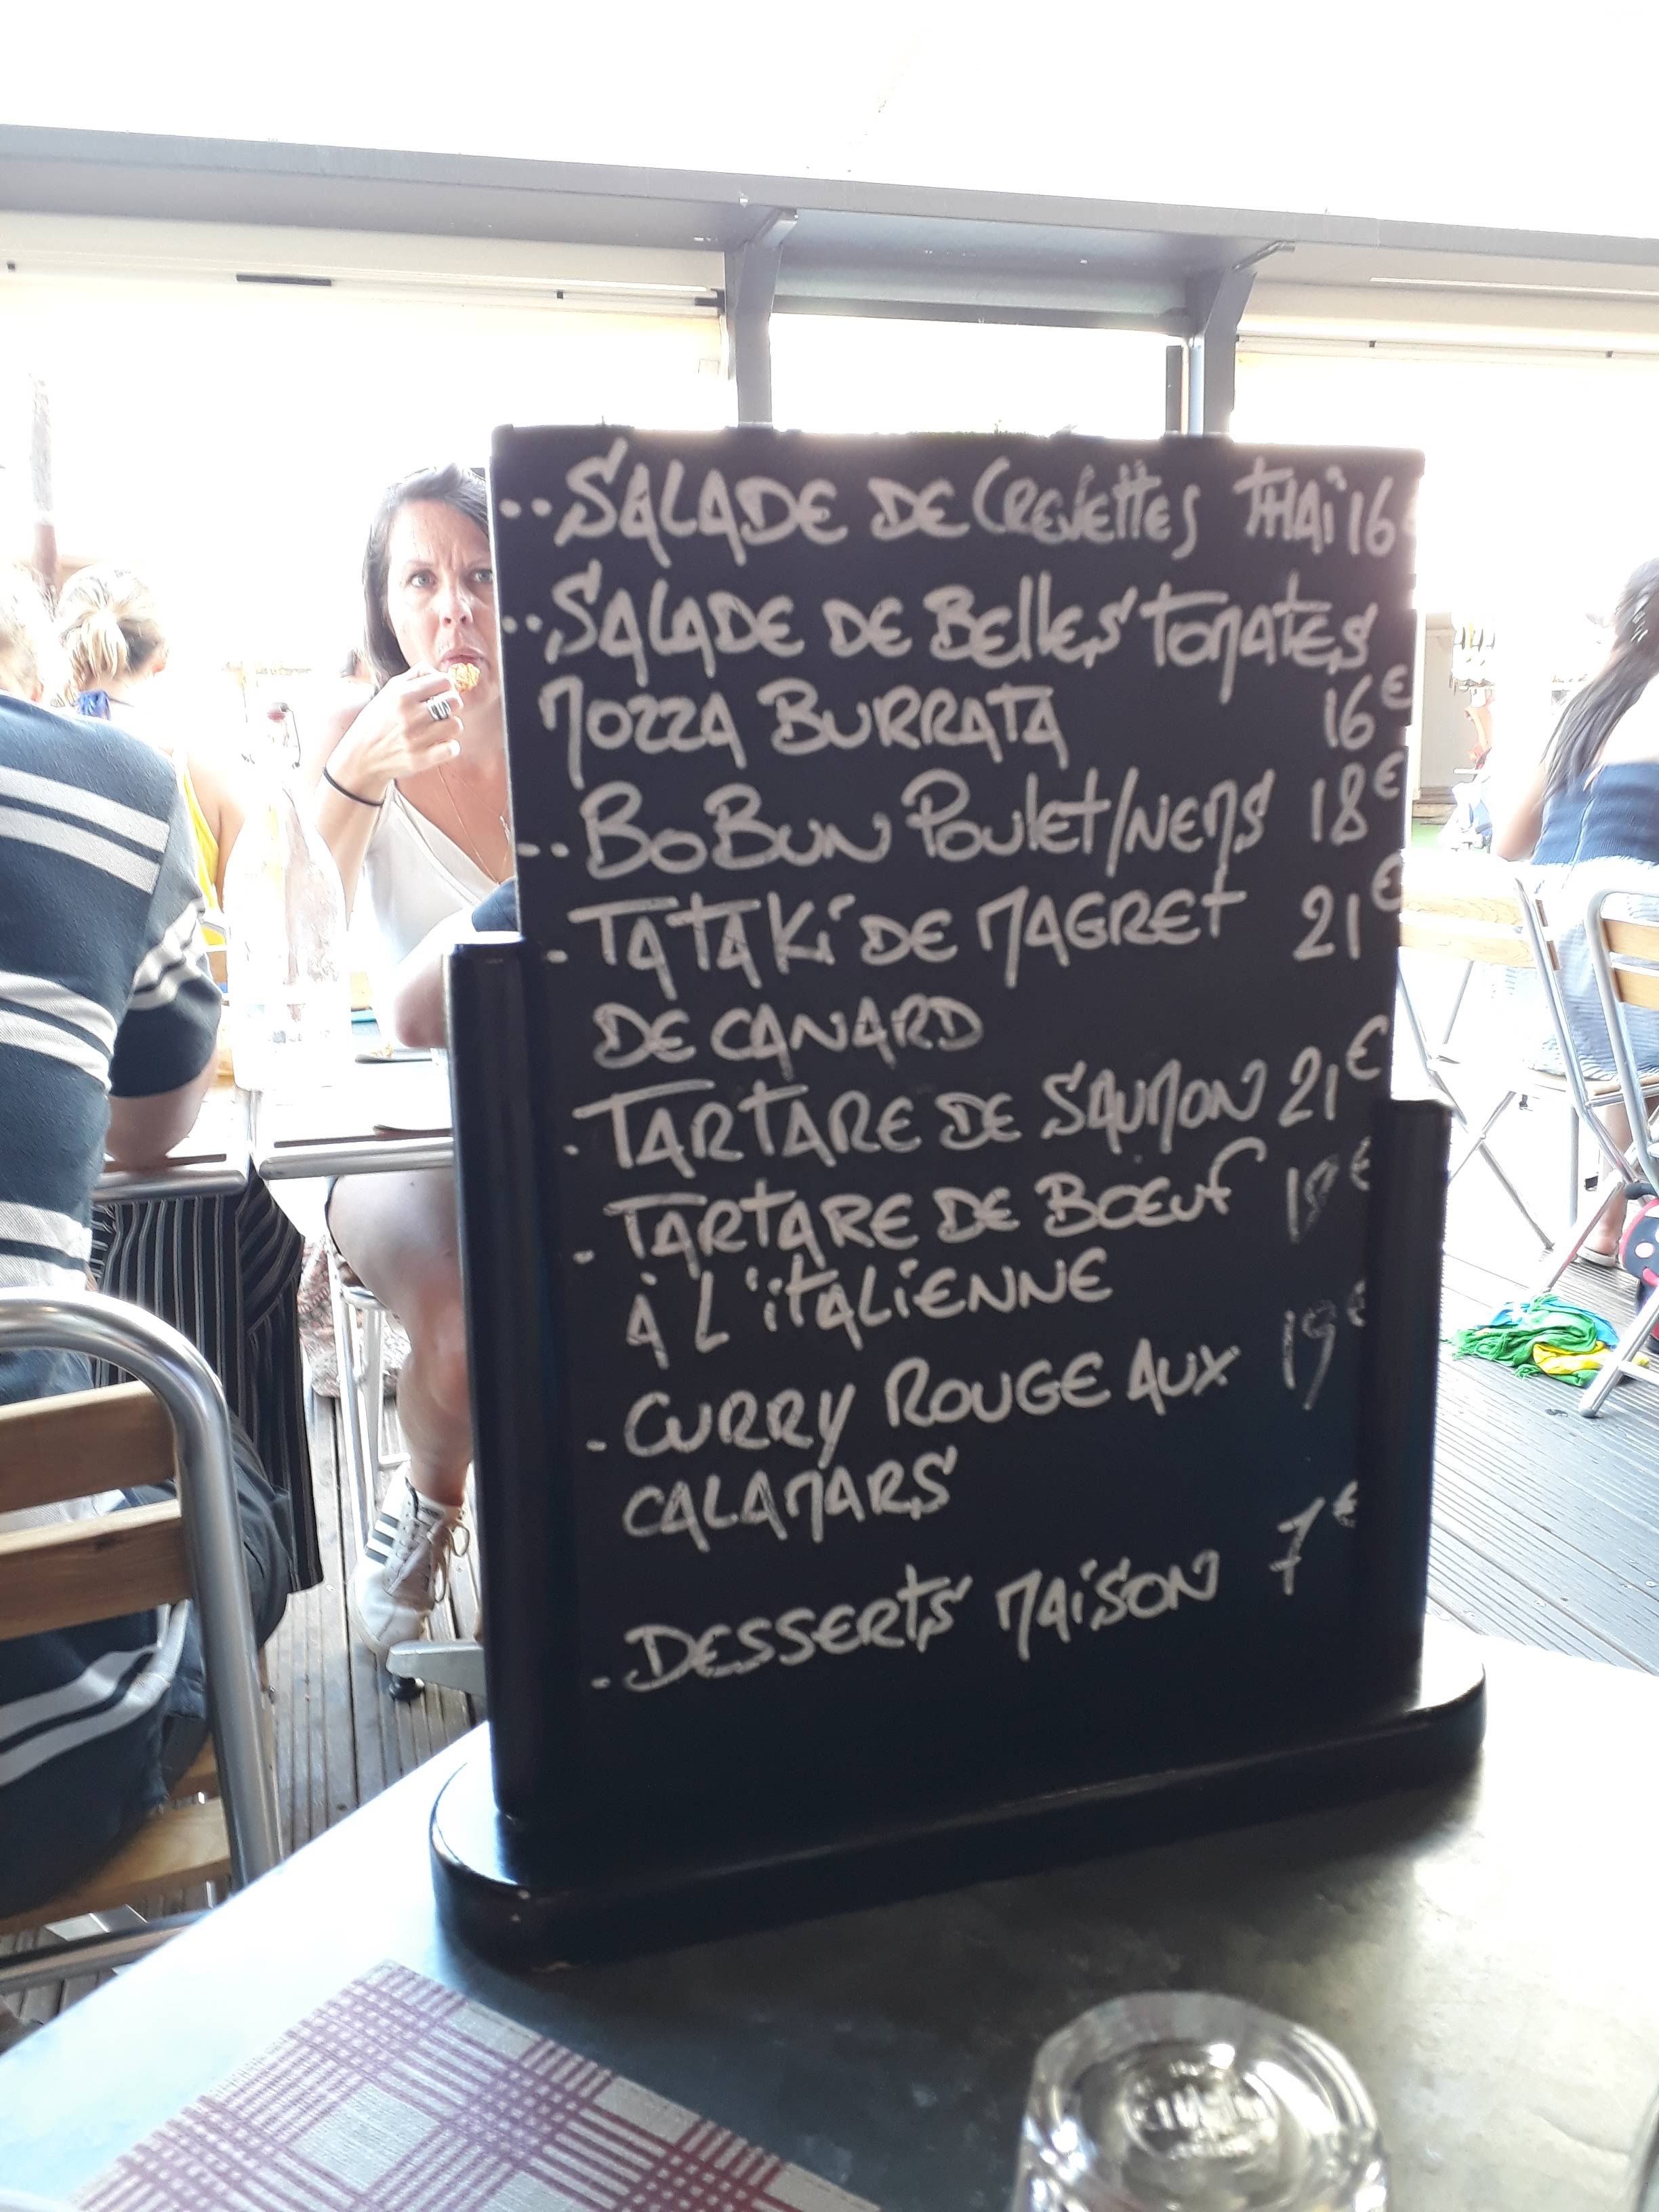 ..SALADE DE CREVETTES THAÏ 16
..SALADE DE BELLES TOMATES
MOZZA BURRATA 16€
..BOBUN POULET/NEMS 18€
.TATAKI DE MAGRET 21€
DE CANARD
.TARTARE DE SAUMON 21€
.TARTARE DE BOEUF
À L'ITALIENNE
-CURRY ROUGE AUX 19€
CALAMARS
.DESSERTS MAISON 7€